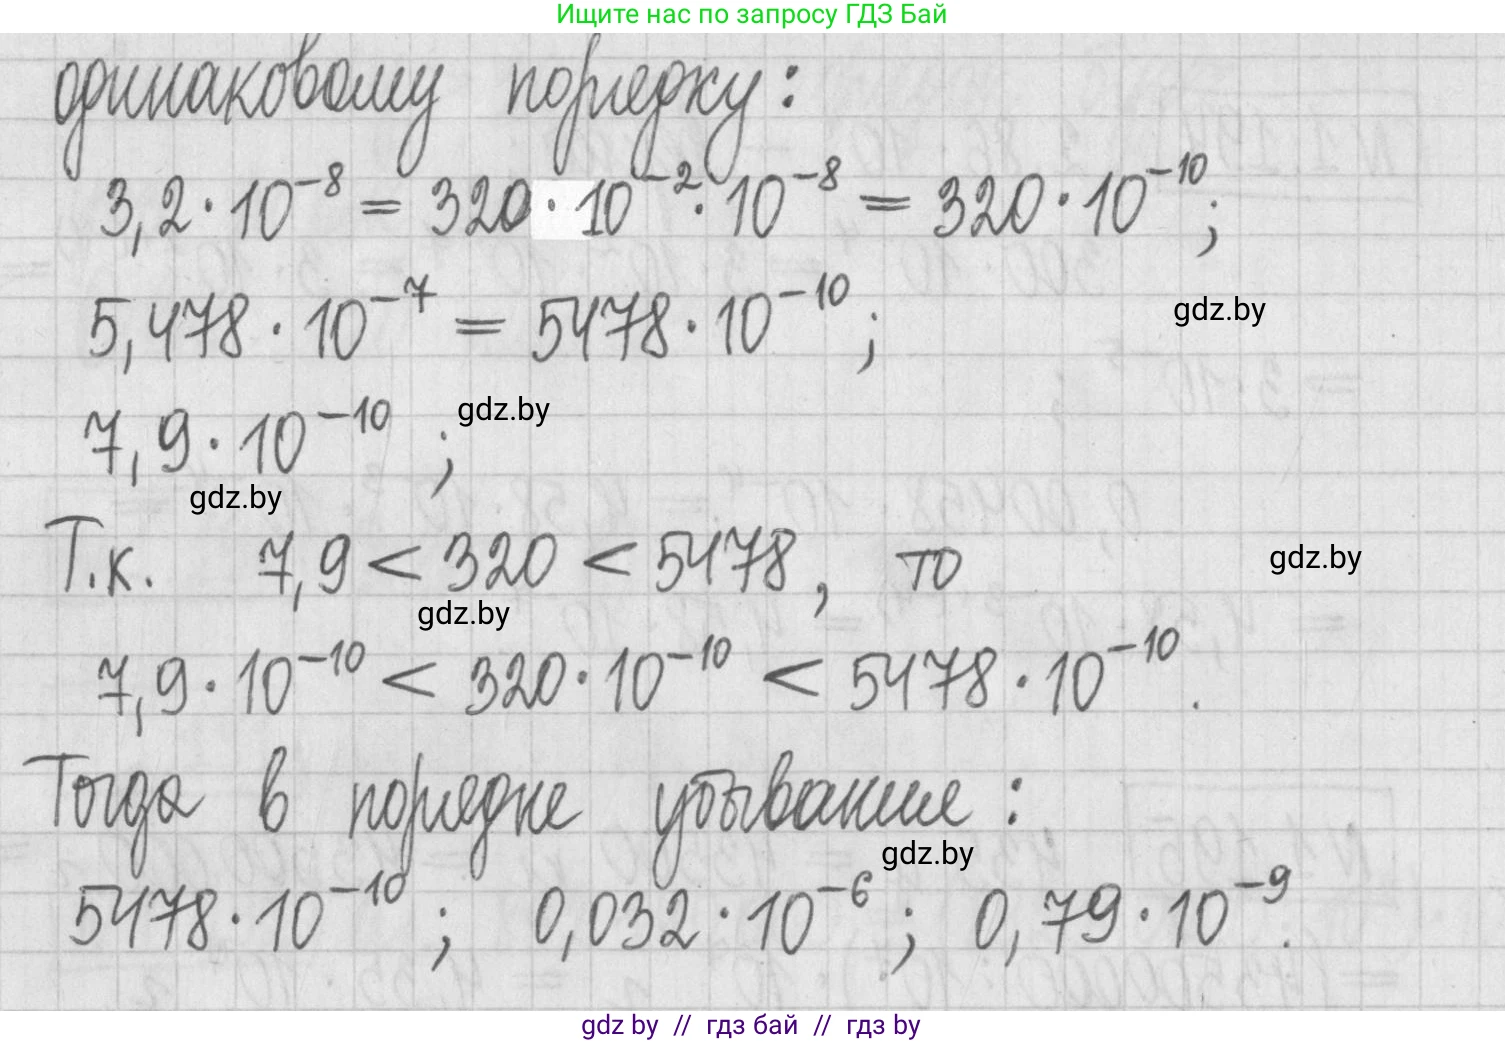 Ищите нас по запросу ГДЗ Бай
одинаковому порядку:
3,2 · 10⁻⁸ = 320 · 10⁻² · 10⁻⁸ = 320 · 10⁻¹⁰;
5,478 · 10⁻⁷ = 5478 · 10⁻¹⁰;
gdz.by
7,9 · 10⁻¹⁰ ;
gdz.by
gdz.by
Т.к. 7,9 < 320 < 5478, то
gdz.by
gdz.by
7,9 · 10⁻¹⁰ < 320 · 10⁻¹⁰ < 5478 · 10⁻¹⁰.
Тогда в порядке убывания:
gdz.by
5478 · 10⁻¹⁰ ; 0,032 · 10⁻⁶ ; 0,79 · 10⁻⁹.
gdz by // гдз бай // гдз by